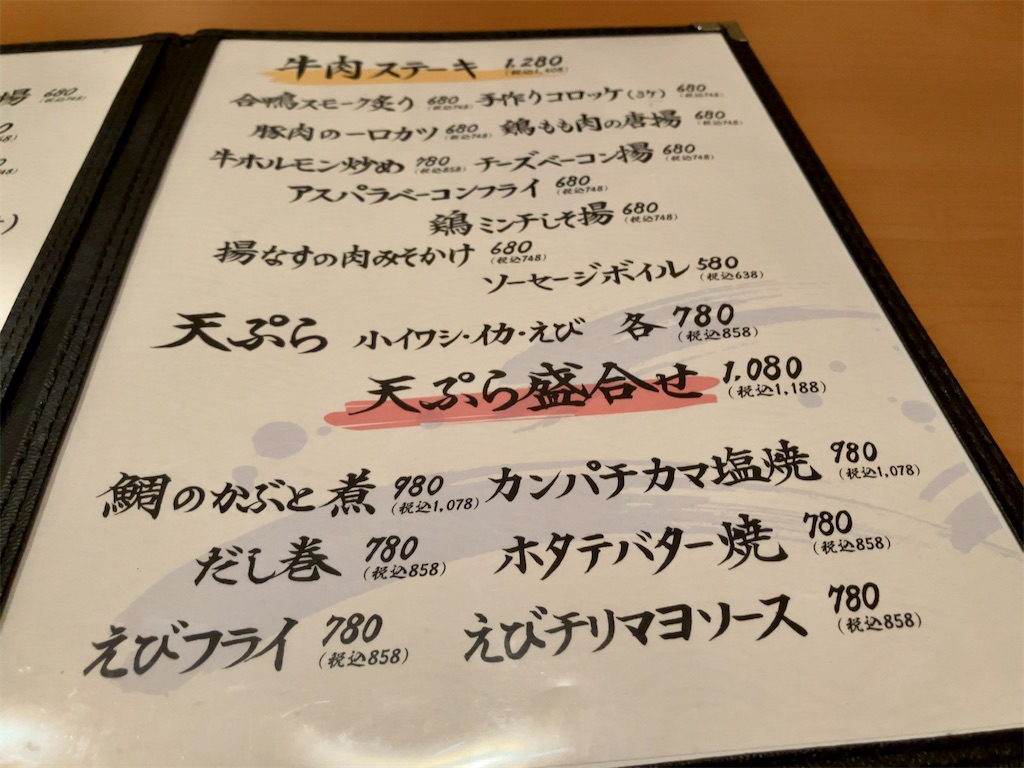 牛肉ステーキ 1,280 (税込1,408)
合鴨スモーク炙り 680 (税込748) 手作りコロッケ(3ケ) 680 (税込748)
豚肉の一口カツ 680 (税込748) 鶏もも肉の唐揚 680 (税込748)
牛ホルモン炒め 780 (税込858) チーズベーコン揚 680 (税込748)
アスパラベーコンフライ 680 (税込748)
鶏ミンチしそ揚 680 (税込748)
揚なすの肉みそかけ 680 (税込748)
ソーセージボイル 580 (税込638)
天ぷら 小イワシ・イカ・えび 各 780 (税込858)
天ぷら盛合せ 1,080 (税込1,188)
鯛のかぶと煮 980 (税込1,078) カンパチカマ塩焼 980 (税込1,078)
だし巻 780 (税込858) ホタテバター焼 780 (税込858)
えびフライ 780 (税込858) えびチリマヨソース 780 (税込858)
揚 680 (税込748)